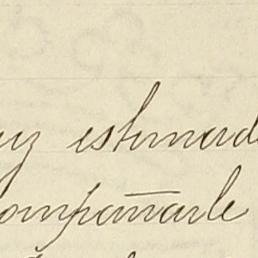 uy estimad
ompañarle